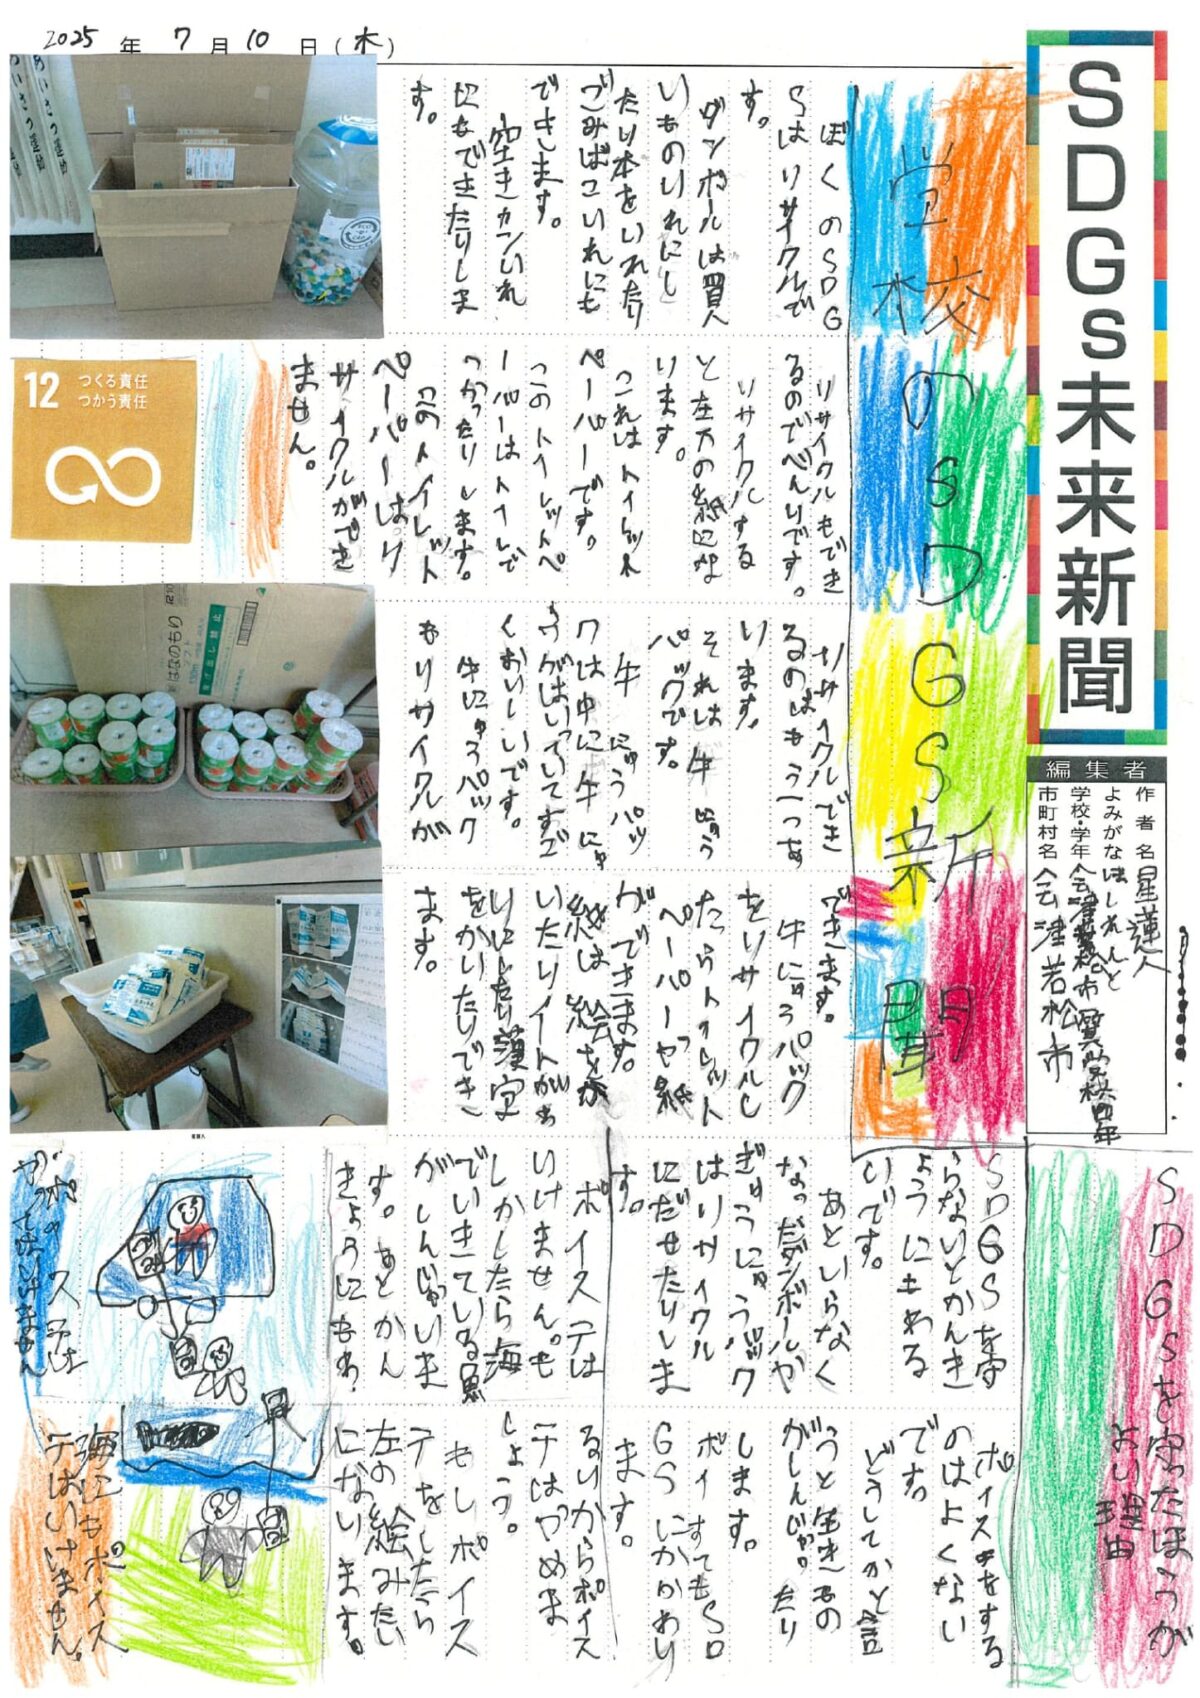 2025年7月10日(木)
SDGs未来新聞
編集者
作者名 星蓮人
よみがな ほしれんと
学校・学年
市町村名 会津若松市
学校のSDGS新聞
ぼくのSDG
Sはリサイクルで
す。
ダンボールは買へ
いものいれにし
たり本をいれたり
ごみばこいれにも
できます。
空きカンいれ
にもできたりしま
す。
リサイクルもでき
るのでべんりです。
リサイクルする
と左下の紙にな
います。
これはトイレット
ペーパーです。
このトイレットペ
ーパーはトイレで
つかったりします。
このトイレット
ペーパーはり
サイクルができ
ません。
リサイクルでき
るのはもう一つあ
います。
それは牛にゅう
パックです。
牛にゅうパッ
クは中に牛にゅ
ウがはいっていてすご
くおいしいです。
牛にゅうパック
もリサイクルが
できます。
牛にゅうパック
をリサイクルし
たらトイレット
ペーパーや紙
ができます。
紙は絵をか
いたりイートがあ
りにしたり漢字
をかいたりでき
ます。
12 つくる責任
つかう責任
はなのもり
SDGsを守ったほうが
よい理由
SDGSを守
らないとかんき
ょうにもわる
いです。
あといらなく
なっただダンボールや
ぎゅうにゅうパック
はリサイクル
にだせたりしま
す。
ポイステは
いけません。も
しかしたら海
でいきている魚
がしんじゃいま
す。あとかん
きょうにもわ
ポイステをする
のはよくない
です。
どうしてかと言
うと生きもの
がしんじゃったり
します。
ポイすてもSD
GSにかかわり
ます。
るいからポイス
テはやめま
しょう。
もしポイス
テをしたら
左の絵みたい
になります。
海にもポイス
テはいけません。